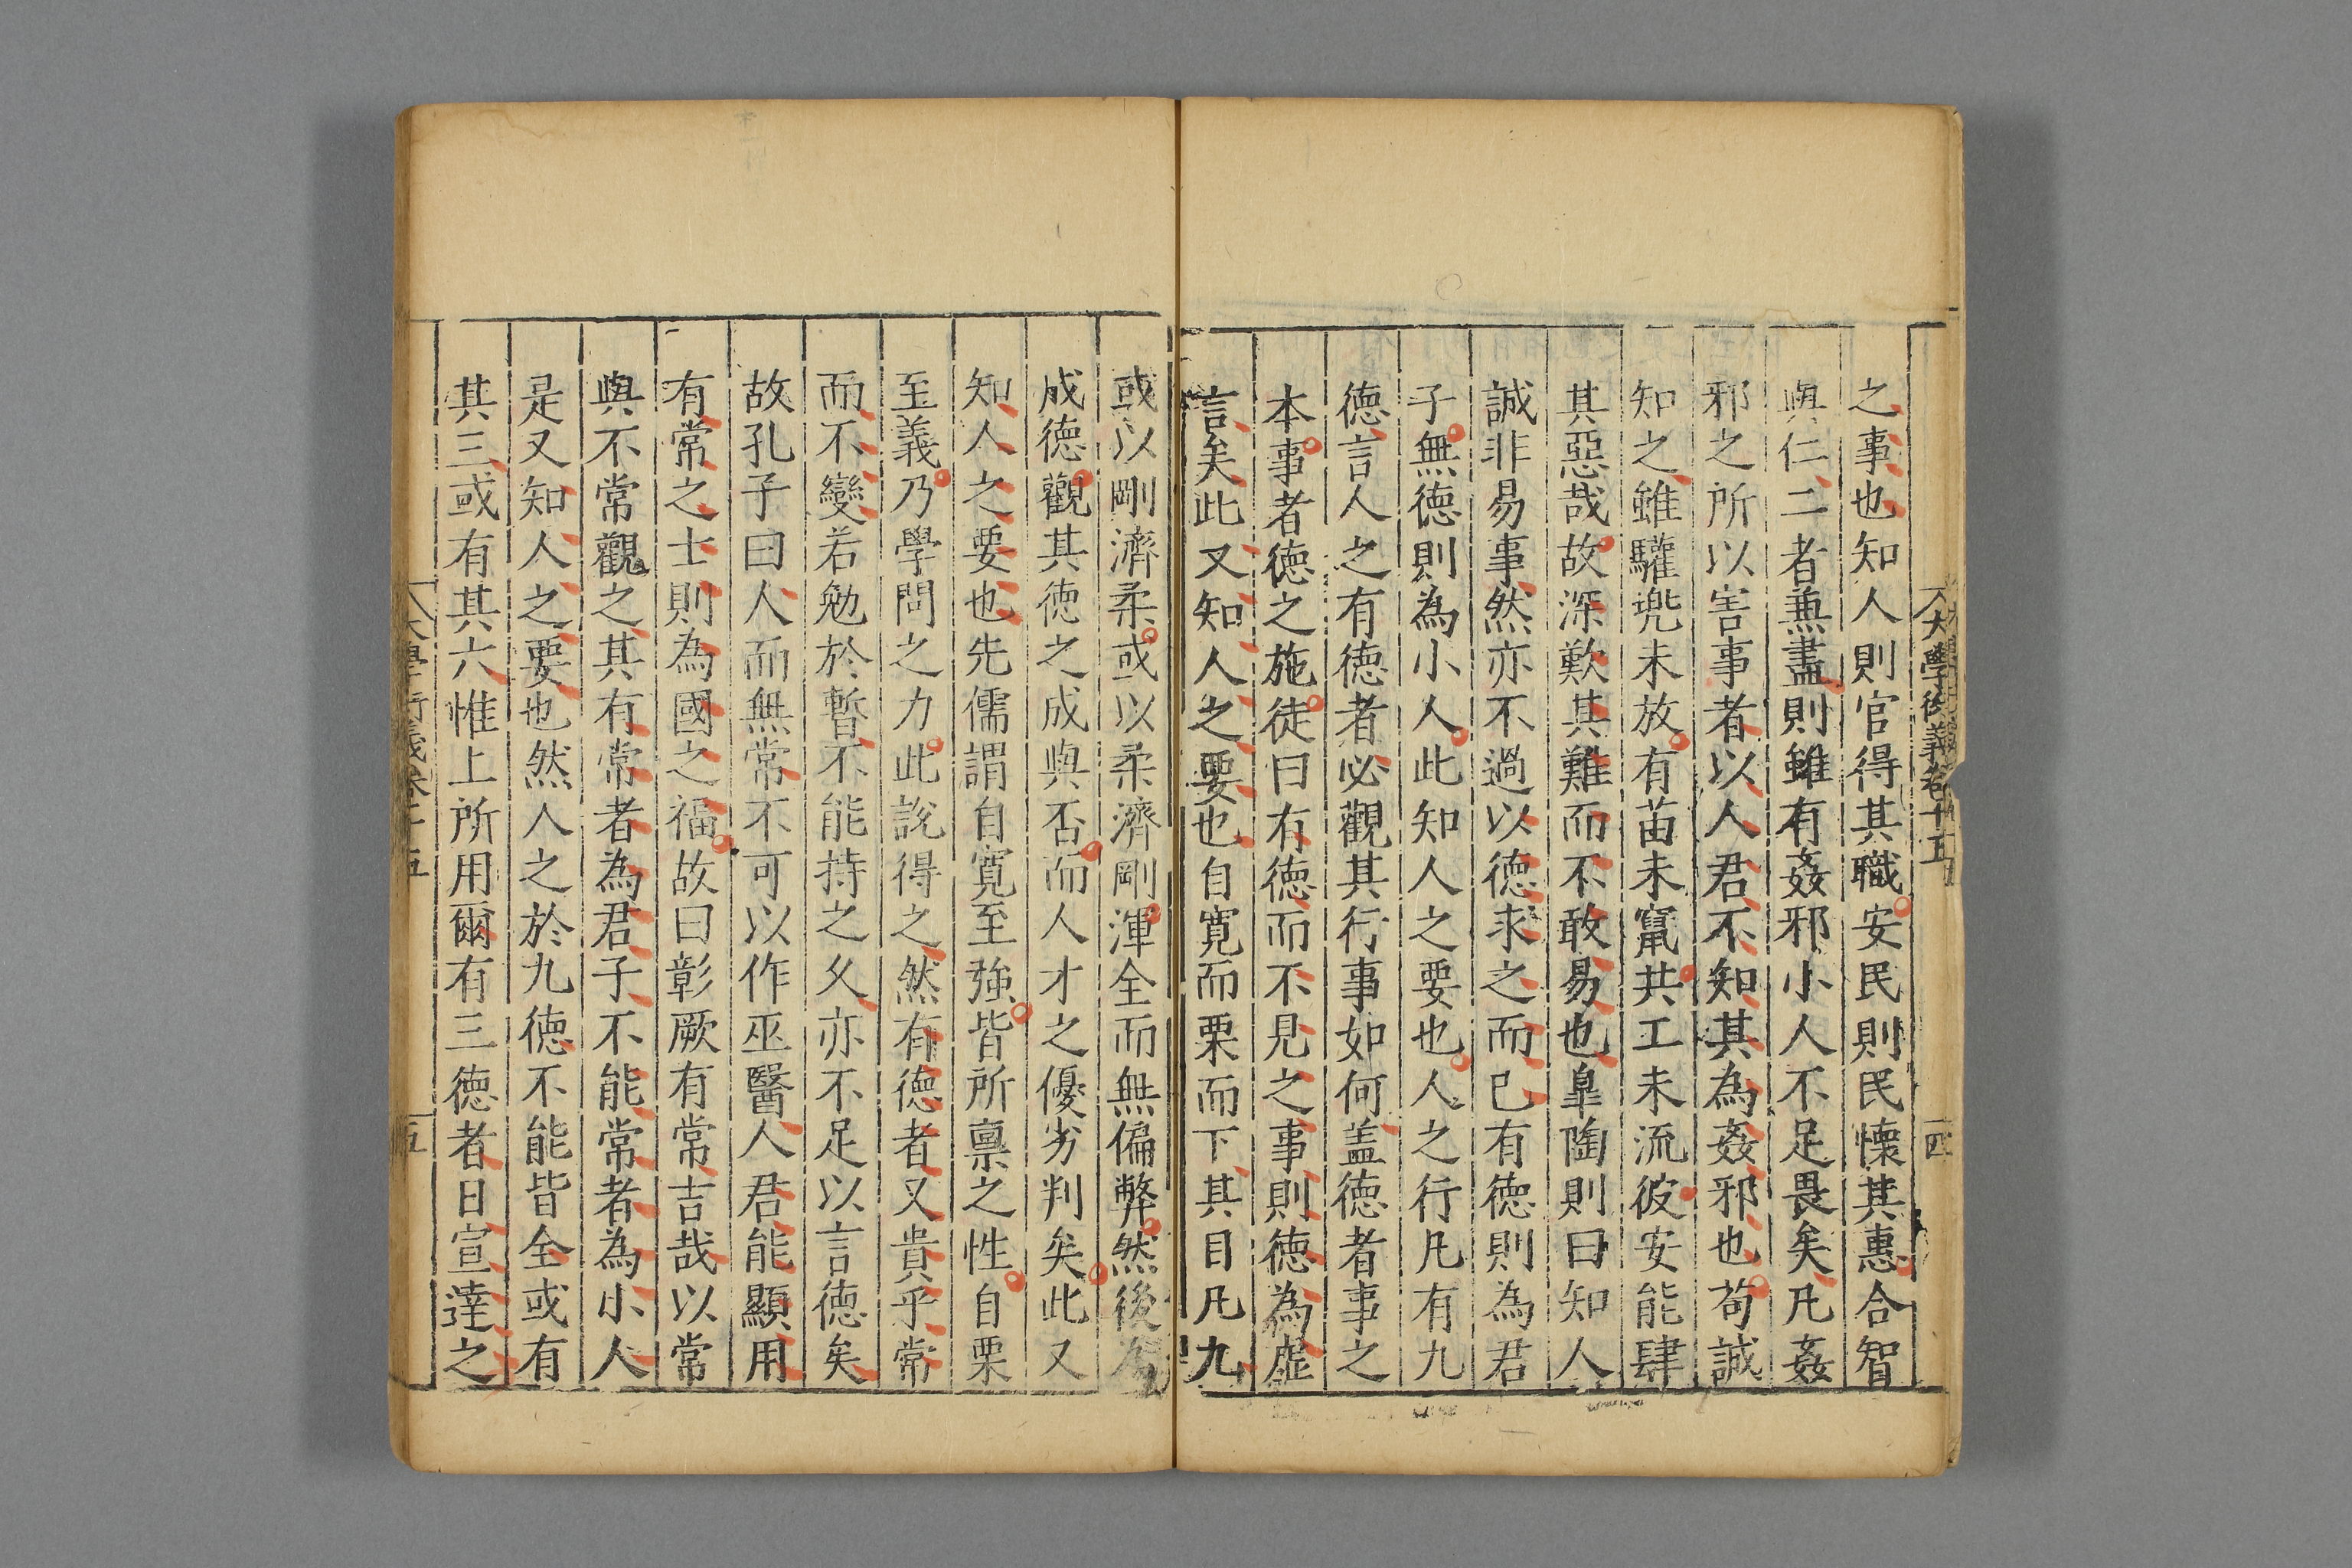 大學衍義卷十五
四
之事也知人則官得其職安民則民懷其惠合智
與仁二者兼盡則雖有姦邪小人不足畏矣凡姦
邪之所以害事者以人君不知其為姦邪也苟誠
知之雖驩兜未放有苗未竄共工未流彼安能肆
其惡哉故深歎其難而不敢易也皐陶則曰知人
誠非易事然亦不過以德求之而已有德則為君
子無德則為小人此知人之要也人之行凡有九
德言人之有德者必觀其行事如何盖德者事之
本事者德之施徒曰有德而不見之事則德為虛
言矣此又知人之要也自寬而栗而下其目凡九
或以剛濟柔或以柔濟剛渾全而無偏弊然後為
成德觀其德之成與否而人才之優劣判矣此又
知人之要也先儒謂自寬至強皆所禀之性自栗
至義乃學問之力此說得之然有德者又貴乎常
而不變若勉於暫不能持之久亦不足以言德矣
故孔子曰人而無常不可以作巫醫人君能顯用
有常之士則為國之福故曰彰厥有常吉哉以常
與不常觀之其有常者為君子不能常者為小人
是又知人之要也然人之於九德不能皆全或有
其三或有其六惟上所用爾有三德者日宣達之
大學衍義卷十五
五